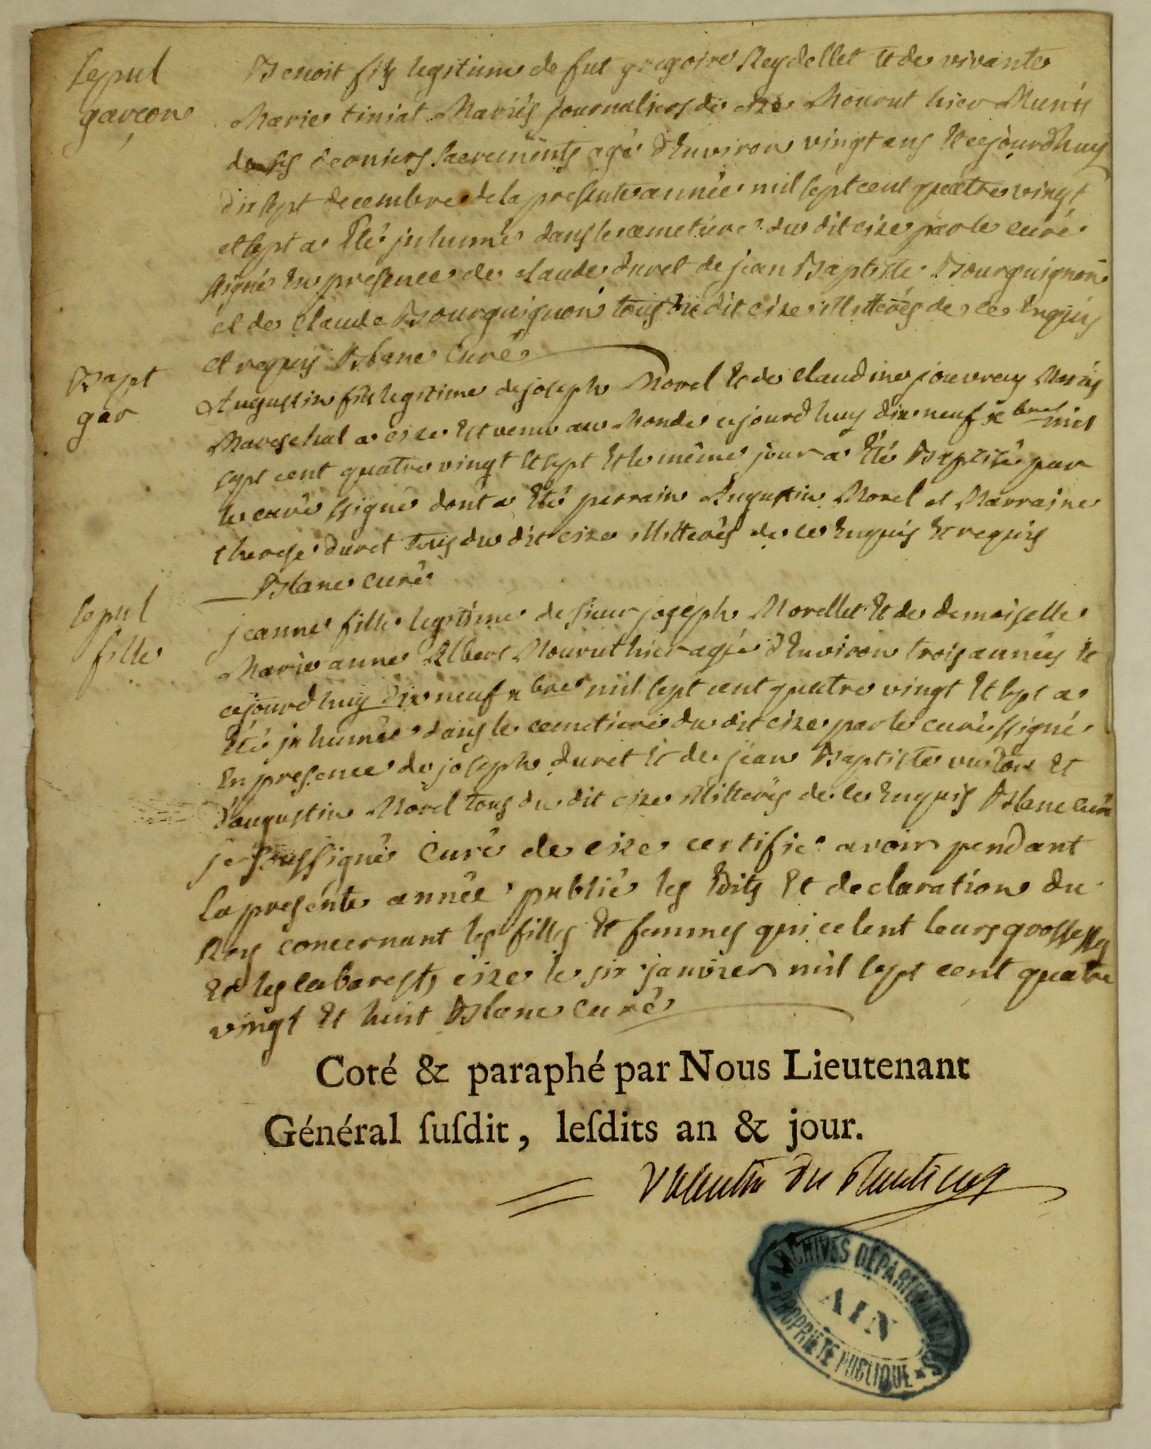 Sepul
garcon
Benoit fils legitime de fut gregoire Reydellet et de vivante
Marie tiniat Mariés journaliers de cize Mourut hier Munis
de ses derniers Sacrements agé d'Environ vingt ans Et cejourdhuy
dix sept decembre de la presente année mil sept cent quatre vingt
et sept a Eté inhumé dans le cemetiere du dit cize par le curé
signé En presence de claude duret de jean Baptiste Bourguignon
et de claude Bourguignon tous du dit cize illitterés de ce Enquis
et requis Blanc Curé
Bapt
gar
Augustin fils legitime de joseph Morel Et de claudine jouvrey Mariés
Mareschal a cize Est venu au Monde cejourdhuy dix neuf xbre mil
sept cent quatre vingt Et sept Et le même jour a Eté Baptisé par
le curé signé dont a Eté parrain Augustin Morel et Marraine
therese duret tous du dit cize illitterés de ce Enquis Et requis
Blanc curé
Sepul
fille
jeanne fille legitime de sieur joseph Morellet Et de demoiselle
Marie anne Albert Mourut hier agée d'Environ trois années Et
cejourdhuy dix neuf xbre mil sept cent quatre vingt Et sept a
Eté inhumée dans le cemetiere du dit cize par le curé signé
En presence de joseph duret Et de jean Baptiste Et
d'augustin Morel tous du dit cize illitterés de ce Enquis Blanc curé
je soussigné Curé de cize certifie avoir pendant
la presente année publié les Edits Et declaration du
Roy concernant les filles Et femmes qui celent leurs grossesses
Et les cabarests cize le six janvier mil sept cent quatre
vingt Et huit Blanc curé
Coté & paraphé par Nous Lieutenant
Général ſuſdit, leſdits an & jour.
Valentin du
ARCHIVES DÉPARTEMENTALES
AIN
PROPRIÉTÉ PUBLIQUE